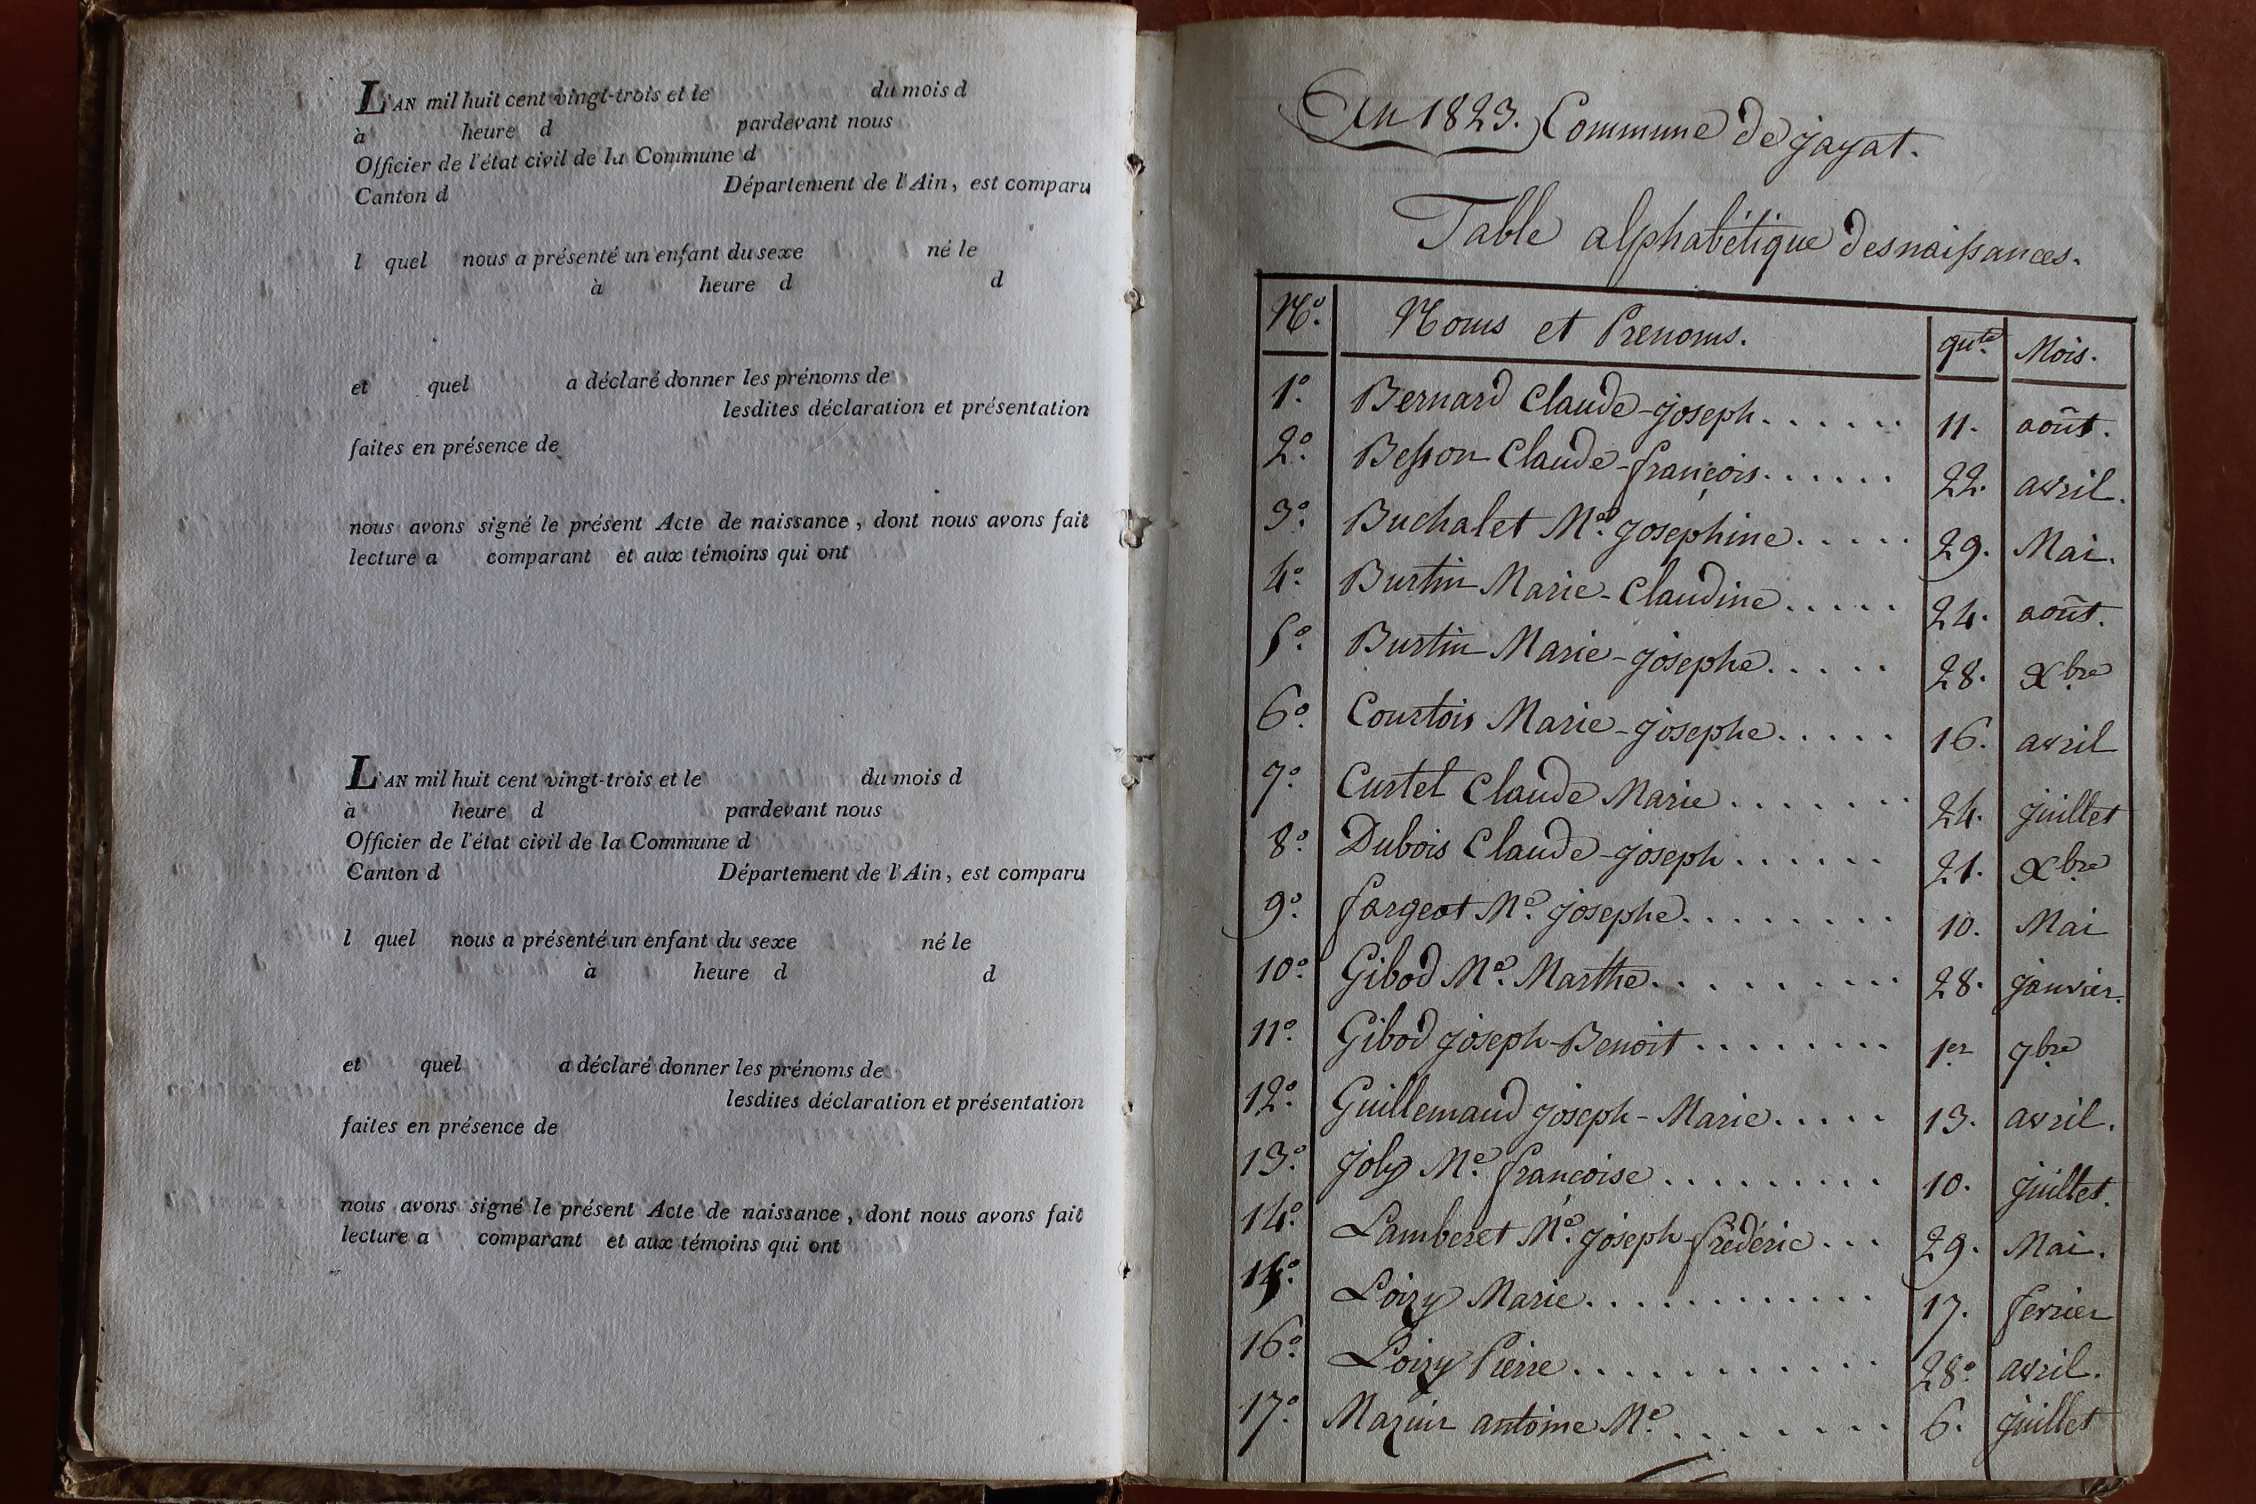 L'AN mil huit cent vingt-trois et le du mois d
à heure d pardevant nous
Officier de l'état civil de la Commune d
Canton d Département de l'Ain, est comparu
l quel nous a présenté un enfant du sexe né le
à heure d d
et quel a déclaré donner les prénoms de
lesdites déclaration et présentation
faites en présence de
nous avons signé le présent Acte de naissance, dont nous avons fait
lecture a comparant et aux témoins qui ont
L'AN mil huit cent vingt-trois et le du mois d
à heure d pardevant nous
Officier de l'état civil de la Commune d
Canton d Département de l'Ain, est comparu
l quel nous a présenté un enfant du sexe né le
à heure d d
et quel a déclaré donner les prénoms de
lesdites déclaration et présentation
faites en présence de
nous avons signé le présent Acte de naissance, dont nous avons fait
lecture a comparant et aux témoins qui ont
An 1823. Commune de jayat.
Table alphabétique des naissances.
No. Noms et Prenoms. qute. Mois.
1o. Bernard Claude-joseph...... 11. août.
2o. Besson Claude-françois...... 22. avril.
3o. Buchalet Me. josephine..... 29. Mai.
4o. Burtin Marie-Claudine..... 24. août.
5o. Burtin Marie-josephe..... 28. Xbre
6o. Courtois Marie-josephe..... 16. avril
7o. Curtet Claude Marie....... 24. juillet
8o. Dubois Claude-joseph...... 21. Xbre
9o. fargeot Me. josephe........ 10. Mai
10o. Gibod Me. Marthe......... 28. janvier.
11o. Gibod joseph-Benoit........ 1er 9bre
12o. Guillemaud joseph-Marie..... 13. avril.
13o. joly Me. françoise......... 10. juillet.
14o. Lamberet Me. joseph-frédéric... 29. Mai.
15o. Loizy Marie............ 17. fevrier
16o. Loizy Pierre............ 28o. avril.
17o. Mazuir antoine Me........ 6. juillet